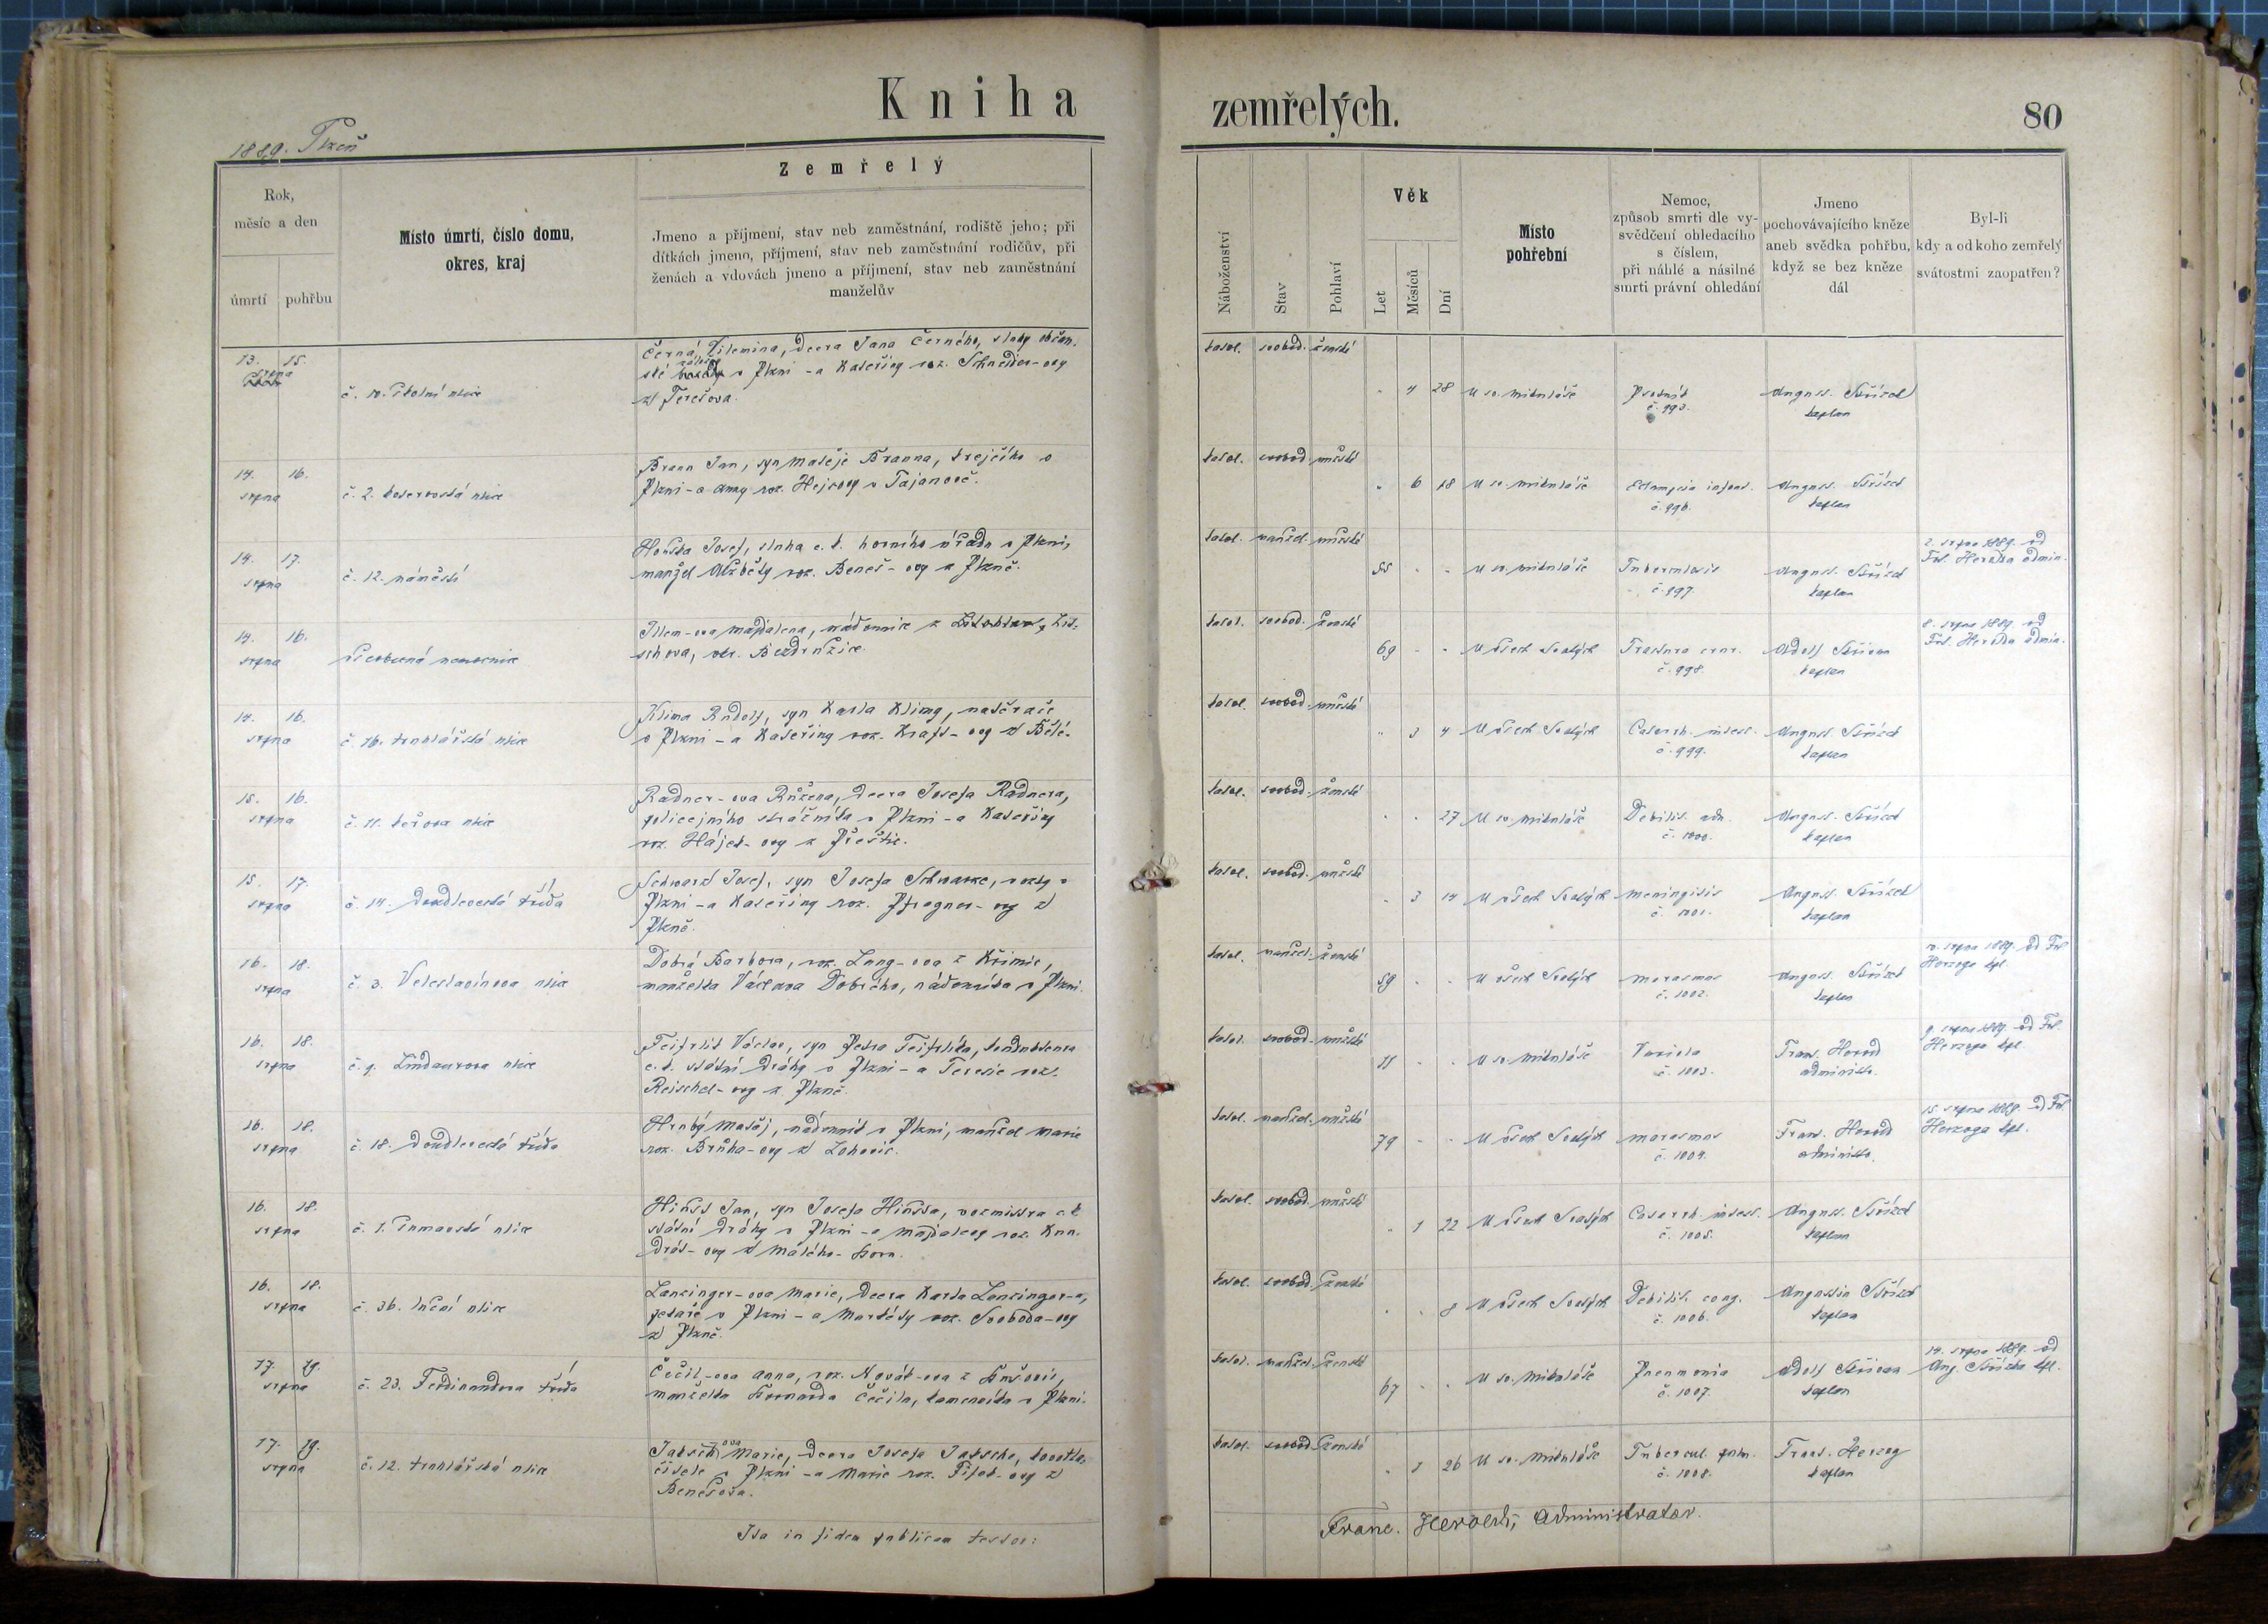 Kniha zemřelých.
80
1889. Plzeň
Rok, měsíc a den
úmrtí
pohřbu
Místo úmrtí, číslo domu, okres, kraj
Zemřelý
Jmeno a příjmení, stav neb zaměstnání, rodiště jeho; při
dítkách jmeno, příjmení, stav neb zaměstnání rodičův, při
ženách a vdovách jmeno a příjmení, stav neb zaměstnání
manželův
Náboženství
Stav
Pohlaví
Věk
Let
Měsíců
Dní
Místo pohřební
Nemoc,
způsob smrti dle vy-
svědčení ohledacího
s číslem,
při náhlé a násilné
smrti právní ohledání
Jmeno
pochovávajícího kněze
aneb svědka pohřbu,
když se bez kněze
dál
Byl-li
kdy a od koho zemřelý
svátostmi zaopatřen?
13. 15. srpna
č. 10. školní ulice
Černá, Vilemina, dcera Jana Černého, sluhy občan-
ské záložny v Plzni - a Kateřiny roz. Schneider-ovy
z Terešova.
katol. svobod. ženské
4 28 U sv. Mikuláše
Psotník
č. 993.
August. Střízek
kaplan
14. 16. srpna
č. 2. koterovská ulice
Braun Jan, syn Matěje Brauna, krejčího v
Plzni - a Anny roz. Hejrovy v Tajanově.
katol. svobod. mužské
6 18 U sv. Mikuláše
Eclampsia infant.
č. 996.
August. Střízek
kaplan
14. 17. srpna
č. 12. náměstí
Houska Josef, sluha c. k. horního úřadu v Plzni,
manžel Alžběty roz. Beneš-ovy z Plzně.
katol. manžel. mužské
55 U sv. Mikuláše
Tuberculosis
č. 997.
August. Střízek
kaplan
2. srpna 1889. od
Frt. Herolda admin.
14. 16. srpna
všeobecná nemocnice
Magdalena, nádennice z
okr. Bezdružice.
katol. svobod. ženské
69 U všech Svatých
Fractura crur.
č. 998.
Adolf
kaplan
8. srpna 1889. od
Frt. Herolda admin.
14. 16. srpna
č. 16. truhlářská ulice
Klima Rudolf, syn Karla Klimy, natěrače
v Plzni - a Kateřiny roz. Kraft-ovy z Bělé.
katol. svobod. mužské
3 4 U všech Svatých
Catarrh. intest.
č. 999.
August. Střízek
kaplan
15. 16. srpna
č. 11. ulice
Radner-ova Růžena, dcera Josefa Radnera,
policejního strážníka v Plzni - a Kateřiny
roz. Hájek-ovy z Přeštic.
katol. svobod. ženské
27 U sv. Mikuláše
Debilit. adn.
č. 1000.
August. Střízek
kaplan
15. 17. srpna
č. 14. Doudlevecká třída
Schwarz Josef, syn Josefa Schwarze, v
Plzni - a Kateřiny roz. Pfregner-ovy z
Plzně.
katol. svobod. mužské
3 14 U všech Svatých
Meningitis
č. 1001.
August. Střízek
kaplan
16. 18. srpna
č. 3. Veleslavínova ulice
Dobrá Barbora, roz. Lang-ova z Křimic,
manželka Václava Dobrého, nádenníka v Plzni.
katol. manžel. ženské
59 U všech Svatých
Marasmus
č. 1002.
August. Střízek
kaplan
10. srpna 1889. od Frt.
Herzoga kpl.
16. 18. srpna
č. 9. Lindaurova ulice
Feifrlík Václav, syn Petra Feifrlíka, kondukteura
c. k. státní dráhy v Plzni - a Terezie roz.
Reischel-ovy z Plzně.
katol. svobod. mužské
11 U sv. Mikuláše
Variola
č. 1003.
Frant. Herold
administr.
9. srpna 1889. od Frt.
Herzoga kpl.
16. 18. srpna
č. 18. Doudlevecká třída
Hrubý Matěj, nádenník v Plzni, manžel Marie
roz. Brůha-ovy z Lohovic.
katol. manžel. mužské
79 U všech Svatých
Marasmus
č. 1004.
Frant. Herold
administr.
15. srpna 1889. od Frt.
Herzoga kpl.
16. 18. srpna
č. 1. ulice
Jan, syn Josefa vozmistra c. k.
státní dráhy v Plzni - a Magdaleny roz. Kun-
drát-ovy z Malého-Boru.
katol. svobod. mužské
1 22 U všech Svatých
Catarrh. intest.
č. 1005.
August. Střízek
kaplan
16. 18. srpna
č. 36. luční ulice
Lenzinger-ova Marie, dcera Karla Lenzinger-a,
pekaře v Plzni - a Markéty roz. Svoboda-ovy
z Plzně.
katol. svobod. ženské
8 U všech Svatých
Debilit. cong.
č. 1006.
Augustin Střízek
kaplan
17. 19. srpna
č. 23. Ferdinandova třída
Čečil-ova Anna, roz. Novák-ova z
manželka Bernarda Čečila, kameníka v Plzni.
katol. manžel. ženské
67 U sv. Mikuláše
Pneumonia
č. 1007.
Adolf
kaplan
14. srpna 1889. od
Aug. Střízka kpl.
17. 19. srpna
č. 12. truhlářská ulice
Jakschova Marie, dcera Josefa Jaksche,
v Plzni - a Marie roz. Fišek-ovy z
Benešova.
katol. svobod. ženské
1 26 U sv. Mikuláše
Tubercul. pulm.
č. 1008.
Frant. Herzog
kaplan
Ita in fidem publicam testor:
Franc. Herold, Administrator.